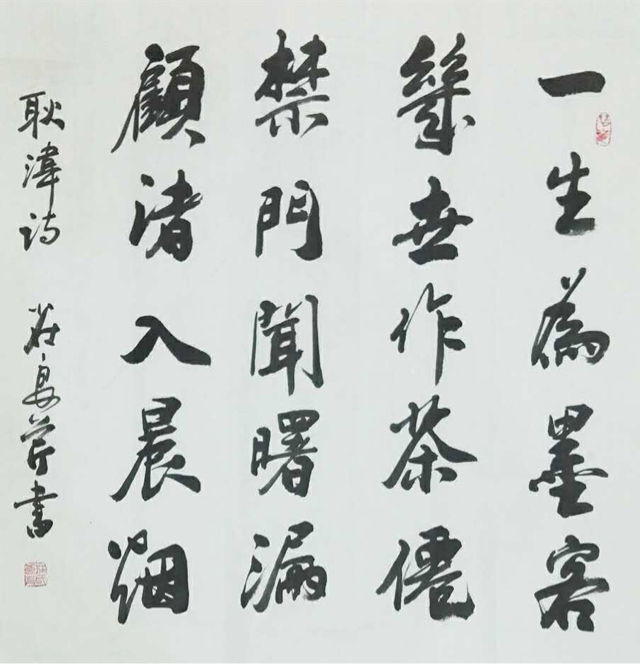 一生為墨客
幾世作茶僊
禁門聞曙漏
顧渚入晨烟
耿湋诗 芹書